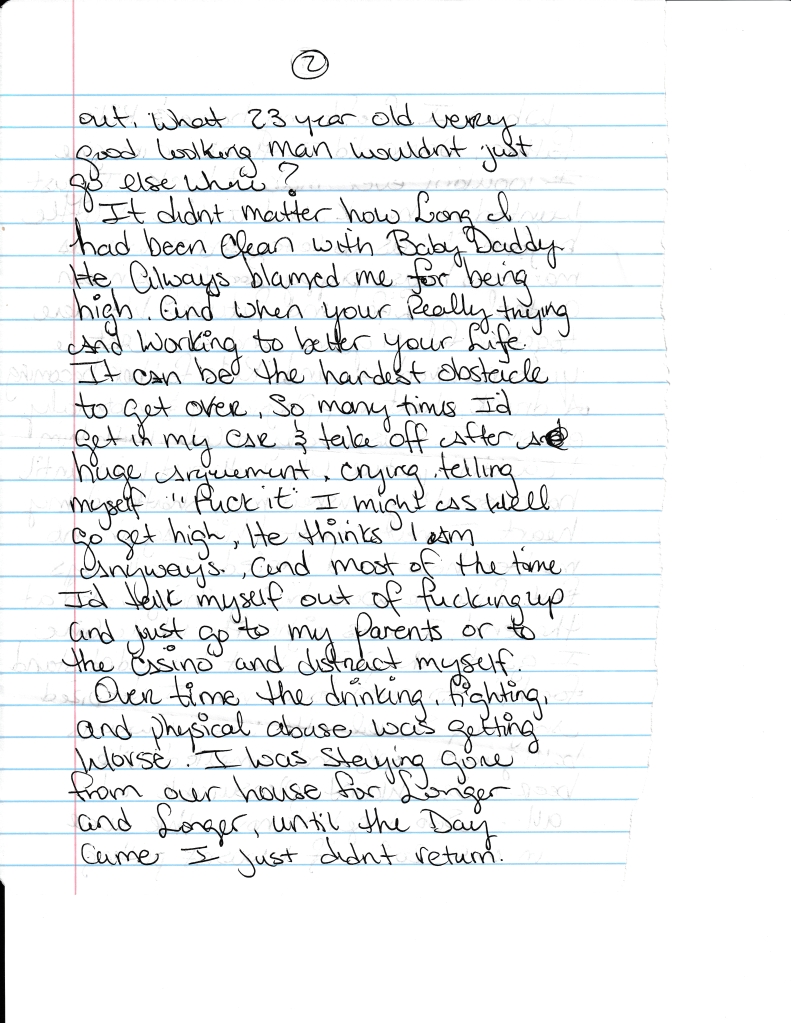 2
out. What 23 year old verry
good looking man wouldnt just
go else where?
It didnt matter how Long I
had been Clean with Baby Daddy
He Always blamed me for being
high. And when your Really trying
and Working to better your Life.
It can be the hardest obstacle
to get over. So many times I'd
get in my car & take off after a
huge arguement, crying, telling
myself "fuck it" I might as well
go get high, He thinks I am
anyways., and most of the time
I'd talk myself out of fucking up
and just go to my Parents or to
the Casino and distract myself.
Over time the drinking, fighting,
and physical abuse was getting
Worse. I was Staying gone
from our house for Longer
and Longer, until the Day
Came I just didnt return.